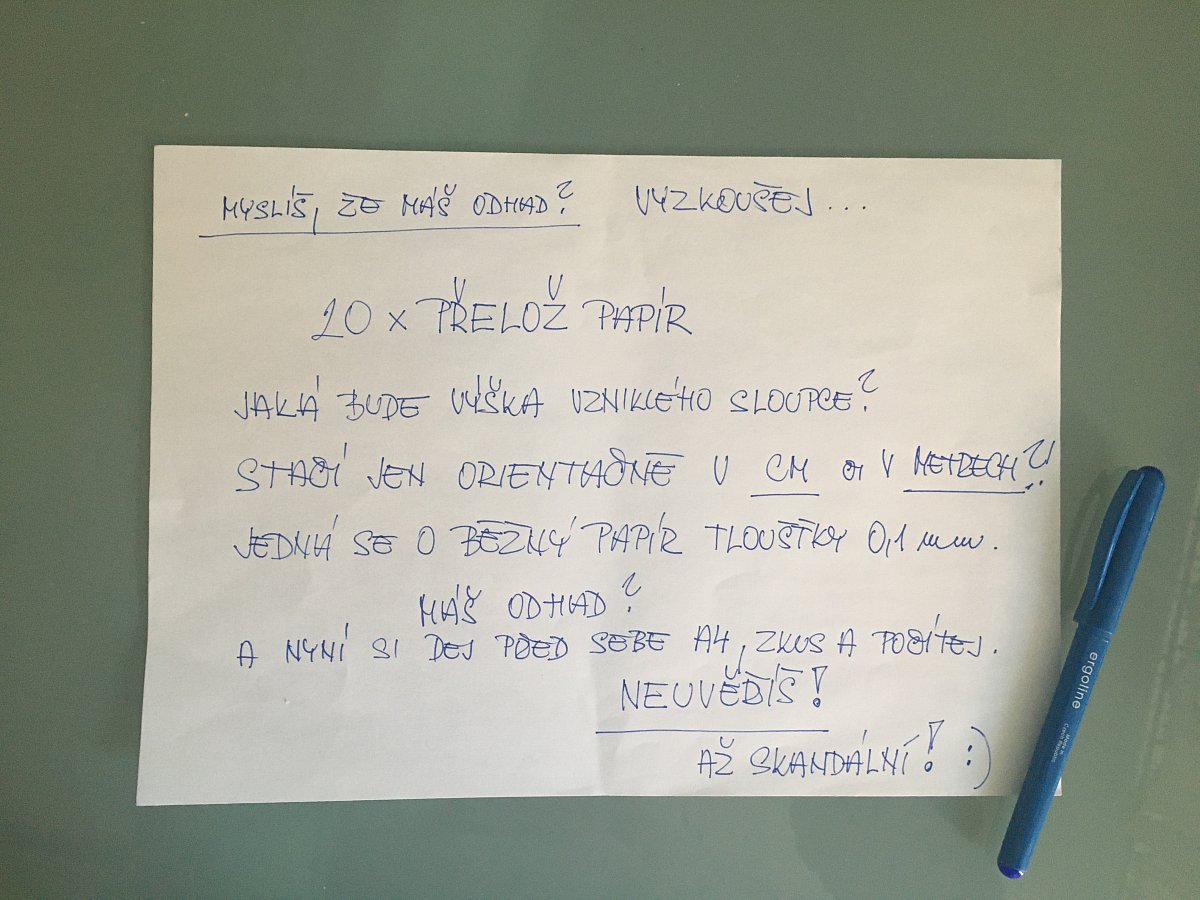 MYSLÍŠ, ŽE MÁŠ ODHAD? VYZKOUŠEJ...
20 x PŘELOŽ PAPÍR
JAKÁ BUDE VÝŠKA VZNIKLÉHO SLOUPCE?
STAČÍ JEN ORIENTAČNĚ V CM či V METRECH?!
JEDNÁ SE O BĚŽNÝ PAPÍR TLOUŠŤKY 0,1 mm.
MÁŠ ODHAD?
A NYNÍ SI DEJ PŘED SEBE A4, ZKUS A POČÍTEJ.
NEUVĚŘÍŠ!
AŽ SKANDÁLNÍ! :)
ergoline
Made in
Czech Republic